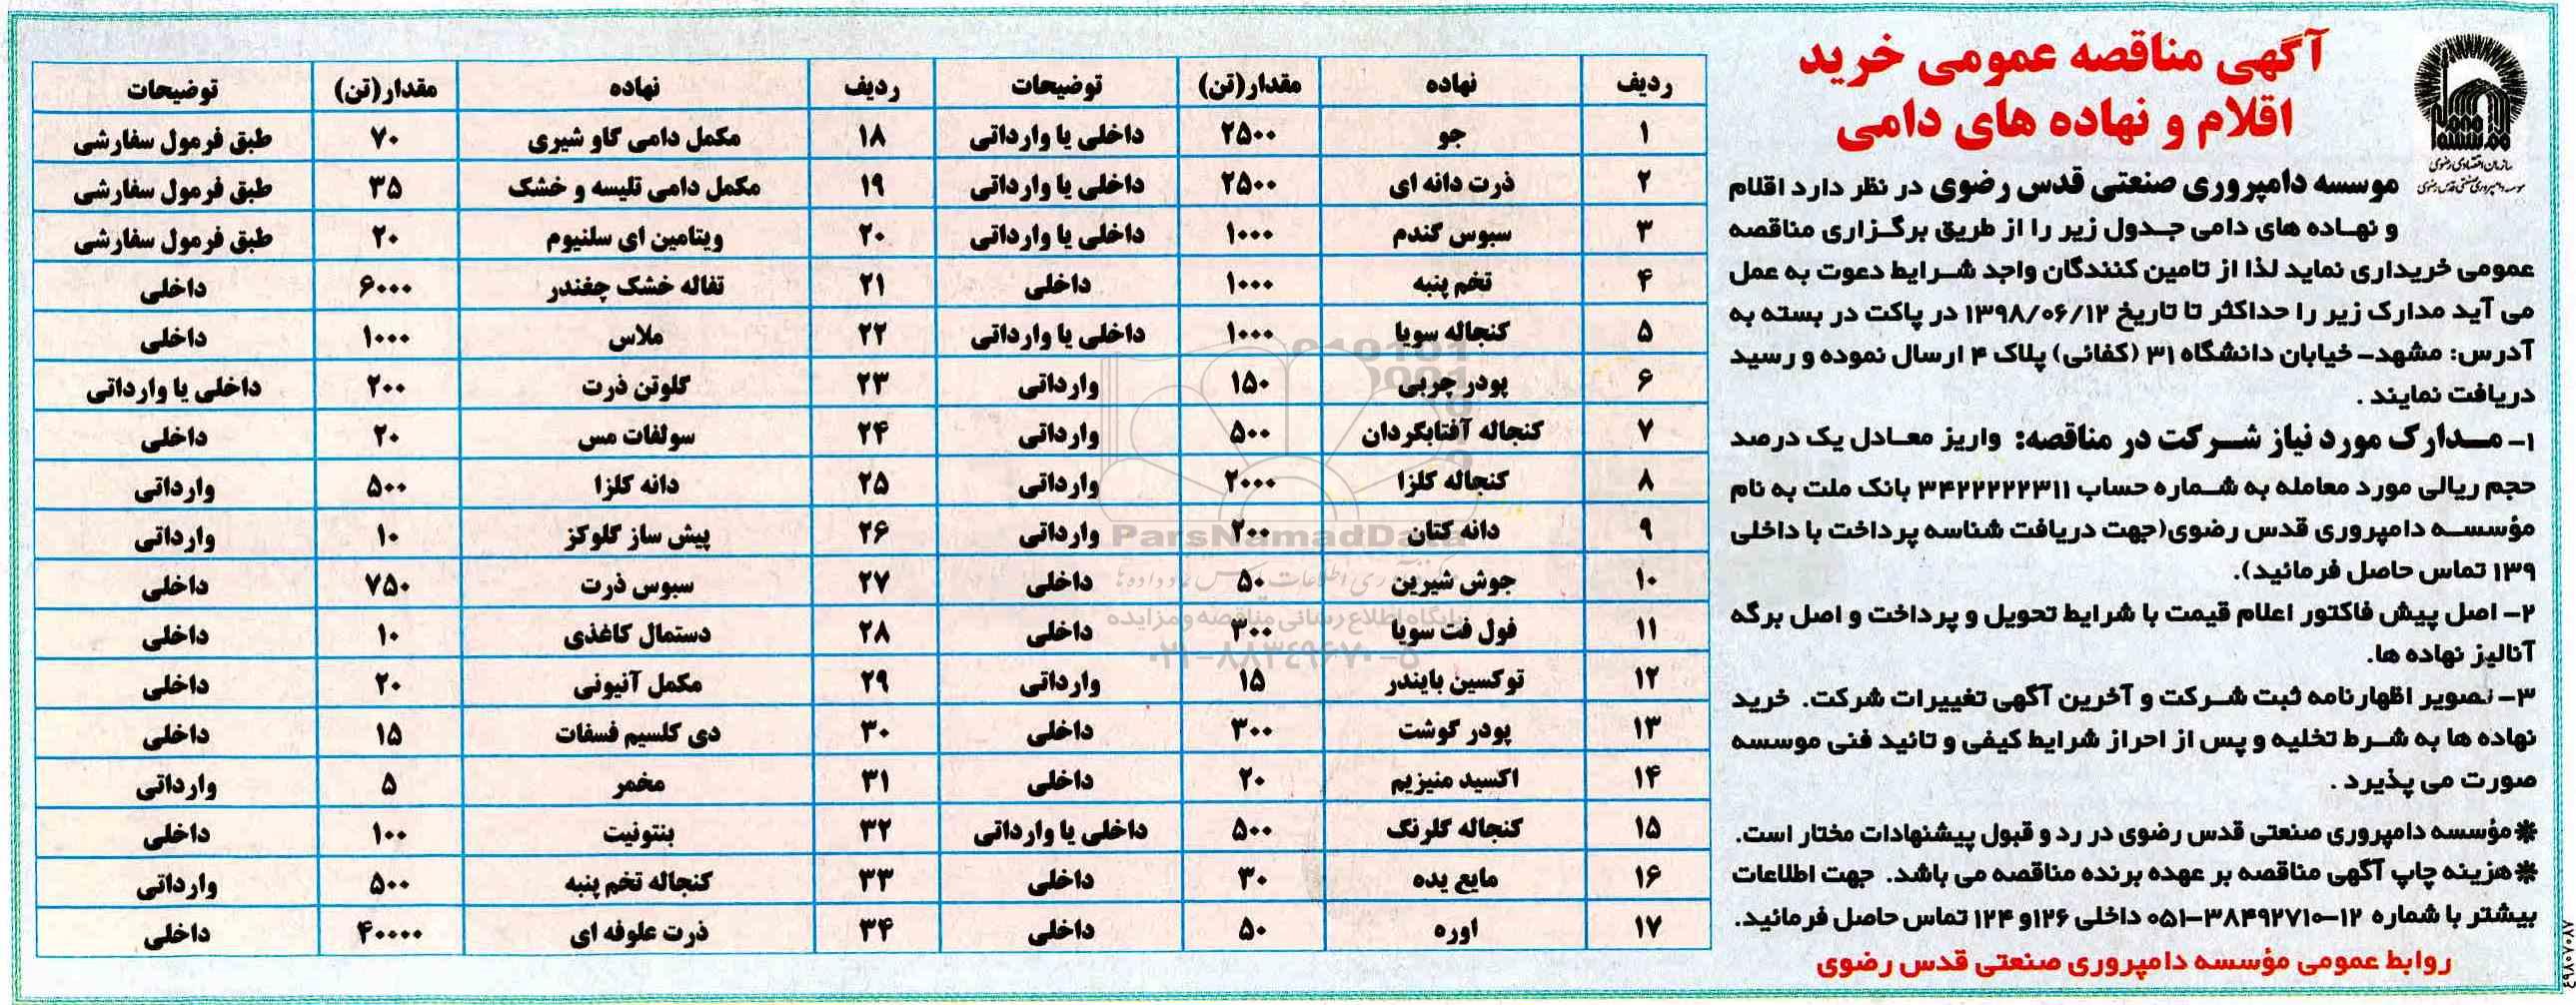 آگهی مناقصه عمومی خرید
اقلام و نهاده های دامی
سازمان اقتصادی رضوی
موسسه دامپروری صنعتی قدس رضوی
موسسه دامپروری صنعتی قدس رضوی در نظر دارد اقلام
و نهاده های دامی جدول زیر را از طریق برگزاری مناقصه
عمومی خریداری نماید لذا از تامین کنندگان واجد شرایط دعوت به عمل
می آید مدارک زیر را حداکثر تا تاریخ ۱۳۹۸/۰۶/۱۲ در پاکت در بسته به
آدرس: مشهد- خیابان دانشگاه ۳۱ (کفائی) پلاک ۴ ارسال نموده و رسید
دریافت نمایند .
۱- مدارک مورد نیاز شرکت در مناقصه: واریز معادل یک درصد
حجم ریالی مورد معامله به شماره حساب ۳۴۲۲۲۲۲۳۱۱ بانک ملت به نام
مؤسسه دامپروری قدس رضوی(جهت دریافت شناسه پرداخت با داخلی
۱۳۹ تماس حاصل فرمائید).
۲- اصل پیش فاکتور اعلام قیمت با شرایط تحویل و پرداخت و اصل برگه
آنالیز نهاده ها.
۳- تصویر اظهارنامه ثبت شرکت و آخرین آگهی تغییرات شرکت. خرید
نهاده ها به شرط تخلیه و پس از احراز شرایط کیفی و تائید فنی موسسه
صورت می پذیرد .
* مؤسسه دامپروری صنعتی قدس رضوی در رد و قبول پیشنهادات مختار است.
* هزینه چاپ آگهی مناقصه بر عهده برنده مناقصه می باشد. جهت اطلاعات
بیشتر با شماره ۱۲-۳۸۴۹۲۷۱۰-۰۵۱ داخلی ۱۲۶و ۱۲۴ تماس حاصل فرمائید.
روابط عمومی مؤسسه دامپروری صنعتی قدس رضوی
ردیف نهاده مقدار(تن) توضیحات ردیف نهاده مقدار(تن) توضیحات
۱ جو ۲۵۰۰ داخلی یا وارداتی ۱۸ مکمل دامی گاو شیری ۷۰ طبق فرمول سفارشی
۲ ذرت دانه ای ۲۵۰۰ داخلی یا وارداتی ۱۹ مکمل دامی تلیسه و خشک ۳۵ طبق فرمول سفارشی
۳ سبوس گندم ۱۰۰۰ داخلی یا وارداتی ۲۰ ویتامین ای سلنیوم ۲۰ طبق فرمول سفارشی
۴ تخم پنبه ۱۰۰۰ داخلی ۲۱ تفاله خشک چغندر ۶۰۰۰ داخلی
۵ کنجاله سویا ۱۰۰۰ داخلی یا وارداتی ۲۲ ملاس ۱۰۰۰ داخلی
۶ پودر چربی ۱۵۰ وارداتی ۲۳ گلوتن ذرت ۲۰۰ داخلی یا وارداتی
۷ کنجاله آفتابگردان ۵۰۰ وارداتی ۲۴ سولفات مس ۲۰ داخلی
۸ کنجاله کلزا ۲۰۰۰ وارداتی ۲۵ دانه کلزا ۵۰۰ وارداتی
۹ دانه کتان ۲۰۰ وارداتی ۲۶ پیش ساز گلوکز ۱۰ وارداتی
۱۰ جوش شیرین ۵۰ داخلی ۲۷ سبوس ذرت ۷۵۰ داخلی
۱۱ فول فت سویا ۳۰۰ داخلی ۲۸ دستمال کاغذی ۱۰ داخلی
۱۲ توکسین بایندر ۱۵ وارداتی ۲۹ مکمل آنیونی ۲۰ داخلی
۱۳ پودر گوشت ۳۰۰ داخلی ۳۰ دی کلسیم فسفات ۱۵ داخلی
۱۴ اکسید منیزیم ۲۰ داخلی ۳۱ مخمر ۵ وارداتی
۱۵ کنجاله گلرنگ ۵۰۰ داخلی یا وارداتی ۳۲ بنتونیت ۱۰۰ داخلی
۱۶ مایع یده ۳۰ داخلی ۳۳ کنجاله تخم پنبه ۵۰۰ وارداتی
۱۷ اوره ۵۰ داخلی ۳۴ ذرت علوفه ای ۴۰۰۰۰ داخلی
ParsNamadData
پایگاه اطلاع رسانی مناقصه و مزایده
۰۲۱-۸۸۳۴۹۶۷۰-۵